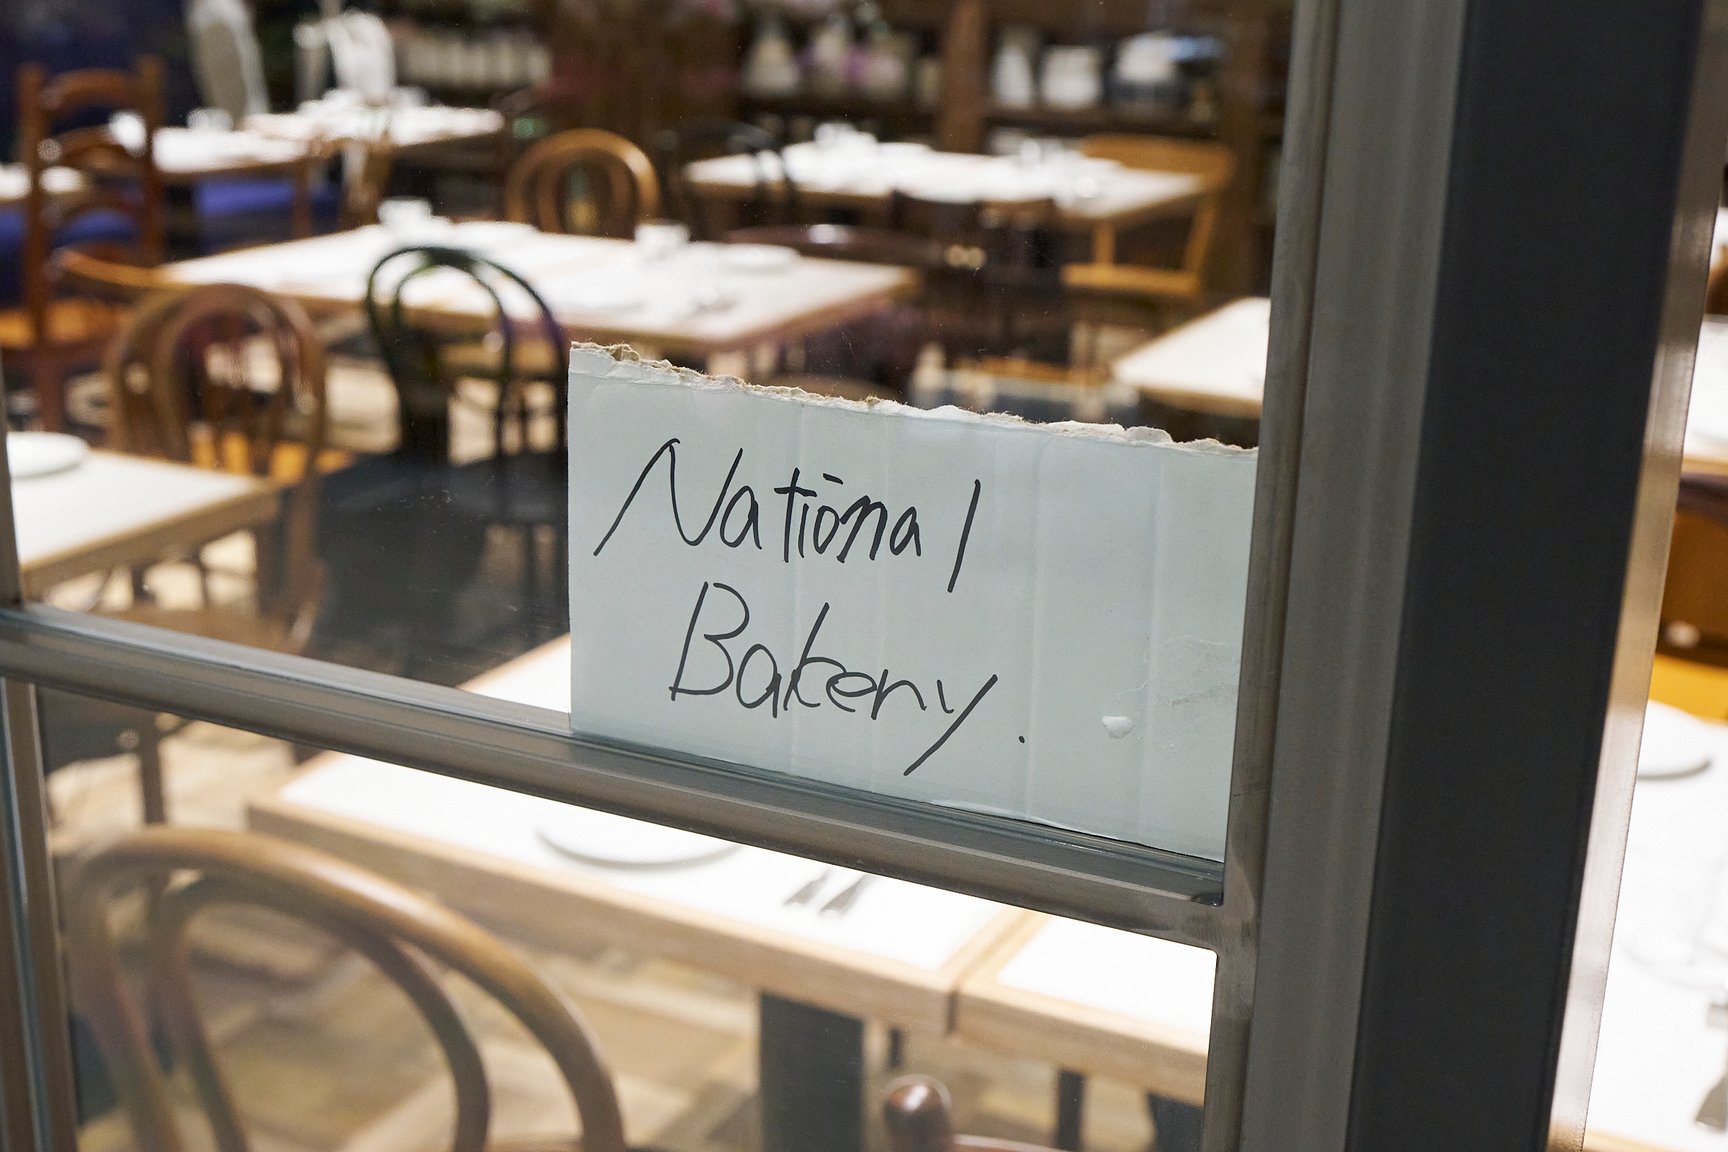 National
Bakery.